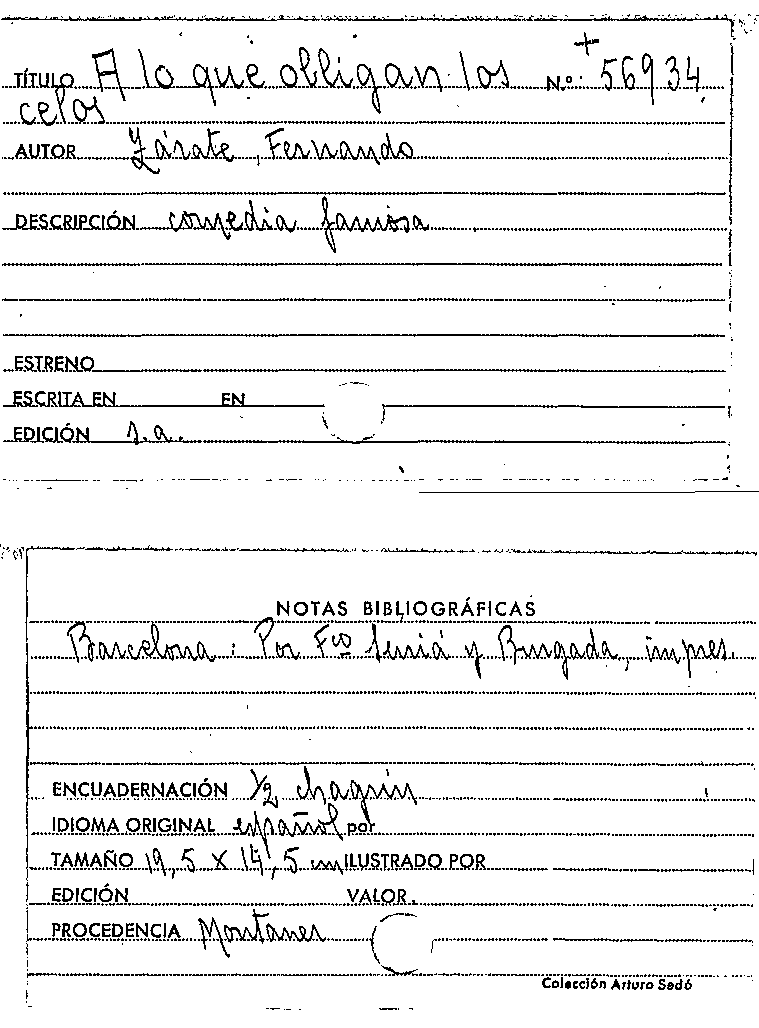 +
TÍTULO A lo que obligan los Nº. 56934
celos
AUTOR Zárate, Fernando
DESCRIPCIÓN comedia famosa
ESTRENO
ESCRITA EN EN
EDICIÓN s.a.
NOTAS BIBLIOGRÁFICAS
Barcelona : Por Fco Suriá y Burgada, impres.
ENCUADERNACIÓN 1/2 chagrin
IDIOMA ORIGINAL español por
TAMAÑO 19,5 x 14,5 cm ILUSTRADO POR
EDICIÓN VALOR.
PROCEDENCIA Montaner
Colección Arturo Sedó